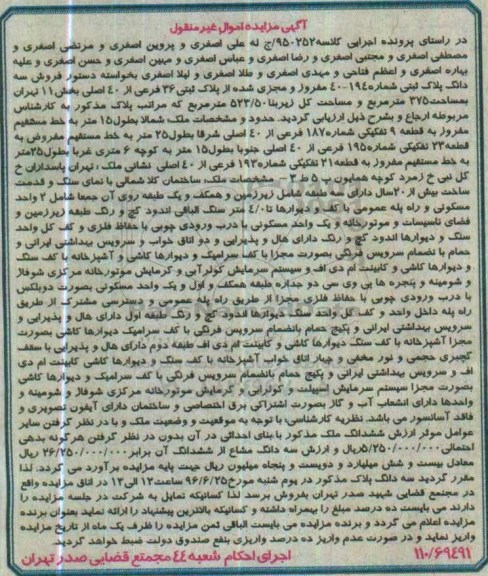 آگهی مزایده اموال غیر منقول
در راستای پرونده اجرایی کلاسه ۹۵۰۲۵۲/ج له علی اصغری و پروین اصغری و مرتضی اصغری و
مصطفی اصغری و مجتبی اصغری و رضا اصغری و عباس اصغری و میهن اصغری و حسن اصغری و علیه
بهاره اصغری و اعظم فتاحی و مهدی اصغری و طلا اصغری و لیلا اصغری بخواسته دستور فروش سه
دانگ پلاک ثبتی شماره ۱۹۴-۴۰ مفروز و مجزی شده از پلاک ثبتی ۳۶ فرعی از ۴۰ اصلی بخش ۱۱ تهران
بمساحت ۳۷۵ مترمربع و مساحت کل زیربنا ۵۲۳/۵۰ مترمربع که مراتب پلاک مذکور به کارشناس
مربوطه ارجاع و بشرح ذیل ارزیابی گردید. حدود و مشخصات ملک: شمالا بطول ۱۵ متر به خط مستقیم
مفروز به قطعه ۹ تفکیکی شماره ۱۸۷ فرعی از ۴۰ اصلی شرقا بطول ۲۵ متر به خط مستقیم مفروض به
قطعه ۲۳ تفکیکی شماره ۱۹۵ فرعی از ۴۰ اصلی جنوبا بطول ۱۵ متر به کوچه ۶ متری غربا بطول ۲۵ متر
به خط مستقیم مفروز به قطعه ۲۱ تفکیکی شماره ۱۹۳ فرعی از ۴۰ اصلی نشانی ملک: تهران پاسداران خ
گل نبی خ زمرد کوچه همایون پ ۵ ط ۳ – مشخصات ملک: ساختمان کلا شمالی با نمای سنگ و قدمت
ساخت بیش از ۲۰ سال دارای سه طبقه شامل زیرزمین و همکف و یک طبقه روی آن جمعا شامل ۲ واحد
مسکونی و راه پله عمومی با کف و دیوارها تا ۴/۰ متر سنگ الباقی اندود گچ و رنگ طبقه زیرزمین و
فضای تاسیسات و موتورخانه و یک واحد مسکونی با درب ورودی چوبی با حفاظ فلزی و کف کل واحد
سنگ و دیوارها اندود گچ و رنگ دارای هال و پذیرایی و دو اتاق خواب و سرویس بهداشتی ایرانی و
حمام با انضمام سرویس فرنگی بصورت مجزا با کف سرامیک و دیوارها کاشی و آشپزخانه با کف سنگ
و دیوارها کاشی و کابینت ام دی اف و سیستم سرمایش کولر آبی و گرمایش موتورخانه مرکزی شوفاژ
و شومینه و پنجره ها پی وی سی دو جداره طبقه همکف و اول و یک واحد مسکونی بصورت دوبلکس
با درب ورودی چوبی با حفاظ فلزی مجزا از طریق راه پله عمومی و دسترسی مشترک از طریق
راه پله داخل واحد و کف کل واحد سنگ دیوارها اندود گچ و رنگ طبقه اول دارای هال و پذیرایی و
سرویس بهداشتی ایرانی و پکیج حمام بانضمام سرویس فرنگی با کف سرامیک دیوارها کاشی بصورت
مجزا آشپزخانه با کف سنگ دیوارها کاشی و کابینت ام دی اف طبقه دوم دارای هال و پذیرایی با سقف
گچبری حجمی و نور مخفی و چهار اتاق خواب آشپزخانه با کف سنگ و دیوارها کاشی کابینت ام دی
اف و سرویس بهداشتی ایرانی و پکیج حمام بانضمام سرویس فرنگی با کف سرامیک و دیوارها کاشی
بصورت مجزا سیستم سرمایش اسپیلت و کولرآبی و گرمایش موتورخانه مرکزی شوفاژ و شومینه و
واحدها دارای انشعاب آب و گاز بصورت اشتراکی برق اختصاصی و ساختمان دارای آیفون تصویری و
فاقد آسانسور می باشد. نظریه کارشناسی: با توجه به موقعیت و وضعیت ملک و با در نظر گرفتن سایر
عوامل موثر ارزش ششدانگ ملک مذکور با بنای احداثی در آن بدون در نظر گرفتن هرگونه بدهی
احتمالی ریال و ارزش سه دانگ مشاع از ششدانگ آن برابر ۲۶/۲۵۰/۰۰۰/۰۰۰ ریال
معادل بیست و شش میلیارد و دویست و پنجاه میلیون ریال جهت پایه مزایده برآورد می گردد. لذا
مقرر گردید سه دانگ پلاک مذکور در یوم شنبه مورخ ۹۶/۶/۲۵ ساعت ۱۲ الی ۱۳ در اتاق مزایده واقع
در مجتمع قضایی شهید صدر تهران بفروش برسد لذا کسانیکه تمایل به شرکت در جلسه مزایده را
دارند می بایست ده درصد مبلغ را بهمراه داشته و کسانیکه بالاترین پیشنهاد را ارائه نماید بعنوان برنده
مزایده اعلام می گردد و برنده مزایده می بایست الباقی ثمن مزایده را ظرف یک ماه از تاریخ مزایده
واریز نماید و در صورت عدم واریز ده درصد واریزی بنفع صندوق دولت ضبط خواهد گردید.
۱۱۰/۶۹۴۹۱ اجرای احکام شعبه ۴۴ مجتمع قضایی صدر تهران